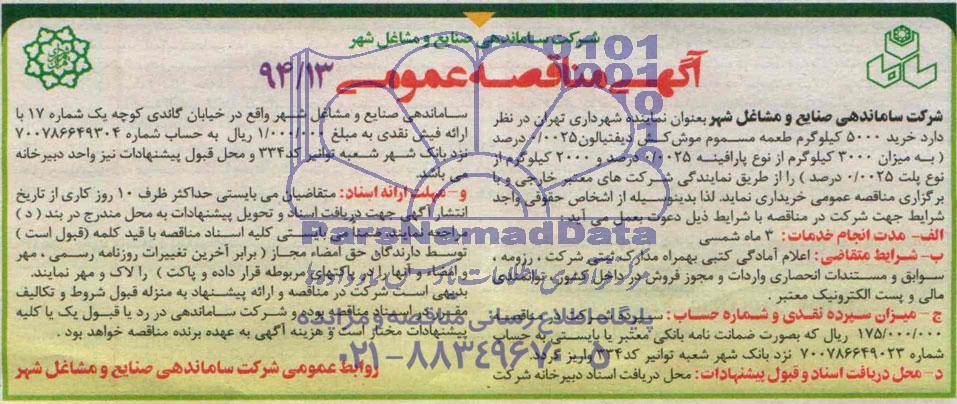 شرکت ساماندهی صنایع و مشاغل شهر
آگهی مناقصه عمومی ۹۴/۱۳
شرکت ساماندهی صنایع و مشاغل شهر بعنوان نماینده شهرداری تهران در نظر
دارد خرید ۵۰۰۰ کیلوگرم طعمه مسموم موش کش دیفتیالون ۰/۰۰۲۵ درصد
( به میزان ۳۰۰۰ کیلوگرم از نوع پارافینه ۰/۰۰۲۵ درصد و ۲۰۰۰ کیلوگرم از
نوع پلت ۰/۰۰۲۵ درصد ) را از طریق نمایندگی شرکت های معتبر خارجی و با
برگزاری مناقصه عمومی خریداری نماید. لذا بدینوسیله از اشخاص حقوقی واجد
شرایط جهت شرکت در مناقصه با شرایط ذیل دعوت بعمل می آید :
الف- مدت انجام خدمات: ۳ ماه شمسی
ب- شرایط متقاضی: اعلام آمادگی کتبی بهمراه مدارک ثبتی شرکت ، رزومه ،
سوابق و مستندات انحصاری واردات و مجوز فروش در داخل کشور، توانمندی
مالی و پست الکترونیک معتبر .
ج- میزان سپرده نقدی و شماره حساب: سپرده شرکت در مناقصه
۱۷۵/۰۰۰/۰۰۰ ریال که بصورت ضمانت نامه بانکی معتبر یا بایستی به حساب
شماره ۷۰۰۷۸۶۶۴۹۰۲۳ نزد بانک شهر شعبه توانیر کد ۳۳۴ واریز گردد.
د- محل دریافت اسناد و قبول پیشنهادات: محل دریافت اسناد دبیرخانه شرکت
ساماندهی صنایع و مشاغل شهر واقع در خیابان گاندی کوچه یک شماره ۱۷ با
ارائه فیش نقدی به مبلغ ۱/۰۰۰/۰۰۰ ریال به حساب شماره ۷۰۰۷۸۶۶۴۹۳۰۴
نزد بانک شهر شعبه توانیر کد ۳۳۴ و محل قبول پیشنهادات نیز واحد دبیرخانه
می باشد.
و- مهلت ارائه اسناد: متقاضیان می بایستی حداکثر ظرف ۱۰ روز کاری از تاریخ
انتشار آگهی جهت دریافت اسناد و تحویل پیشنهادات به محل مندرج در بند ( د )
مراجعه نمایند. ضمنا می بایستی کلیه اسناد مناقصه با قید کلمه (قبول است )
توسط دارندگان حق امضاء مجاز ( برابر آخرین تغییرات روزنامه رسمی ، مهر
و امضاء و آنها را در پاکتهای مربوطه قرار داده و پاکت ) را لاک و مهر نمایند.
بدیهی است شرکت در مناقصه و ارائه پیشنهاد به منزله قبول شروط و تکالیف
مقرر در اسناد مناقصه بوده و شرکت ساماندهی در رد یا قبول یک یا کلیه
پیشنهادات مختار است و هزینه آگهی به عهده برنده مناقصه خواهد بود .
روابط عمومی شرکت ساماندهی صنایع و مشاغل شهر
ParsNamadData
پایگاه اطلاع رسانی مناقصه و مزایده
۰۲۱-۸۸۳۴۹۶۷۰-۵